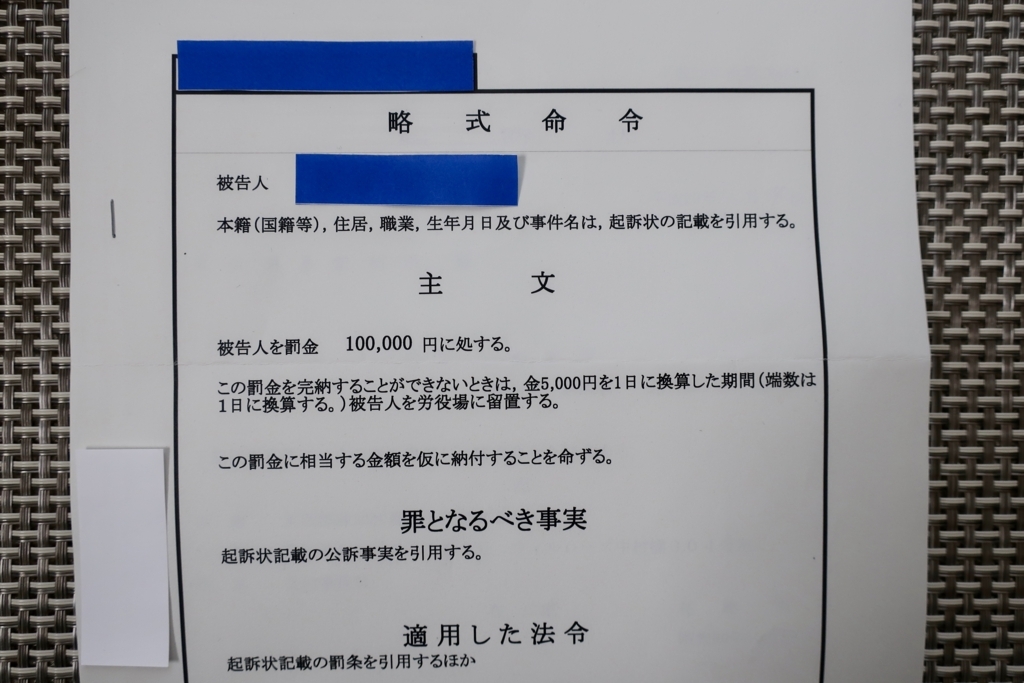 略式命令
被告人
本籍(国籍等),住居,職業,生年月日及び事件名は,起訴状の記載を引用する。
主文
被告人を罰金 100,000 円に処する。
この罰金を完納することができないときは,金5,000円を1日に換算した期間(端数は
1日に換算する。)被告人を労役場に留置する。
この罰金に相当する金額を仮に納付することを命ずる。
罪となるべき事実
起訴状記載の公訴事実を引用する。
適用した法令
起訴状記載の罰条を引用するほか